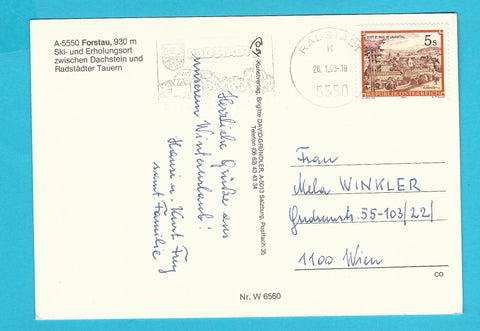 A-5550 Forstau, 930 m
Ski- und Erholungsort
zwischen Dachstein und
Radstädter Tauern
RADSTADT
RADSTADT
26. 1.
5550
STIFT ST. PAUL IM LAVANTTAL
5s
REPUBLIK ÖSTERREICH
Brigitte DAVID-GRÜNDLER, A-5013 Salzburg, Postfach 35
Telefon (06 62) 43 43 34
Herzliche Grüße aus
unserem Winterurlaub!
Hansi u. Kurt
samt Familie
Frau
Mela WINKLER
Gudrunstr. 55-103/22/
1100 Wien
CO
Nr. W 6560